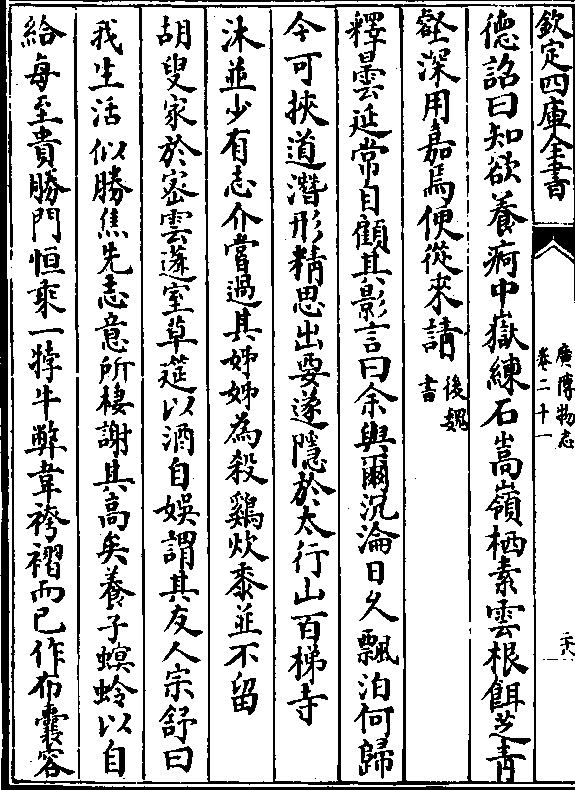 欽定四庫全書
廣博物志
卷二十一
德詔曰知欲養痾中嶽練石嵩嶺栖素雲根餌芝青
壑深用嘉焉便從來請
後魏
書
釋曇延常自顧其影言曰余與爾沉淪日久飄泊何歸
今可挾道潛形精思出要遂隱於太行山百梯寺
沐並少有志介嘗過其姊姊為殺鷄炊黍並不留
胡叟家於密雲蓬室草筵以酒自娛謂其友人宗舒曰
我生活似勝焦先志意所棲謝其高矣養子螟蛉以自
給每至貴勝門恒乘一牸牛弊韋袴褶而已作布囊容